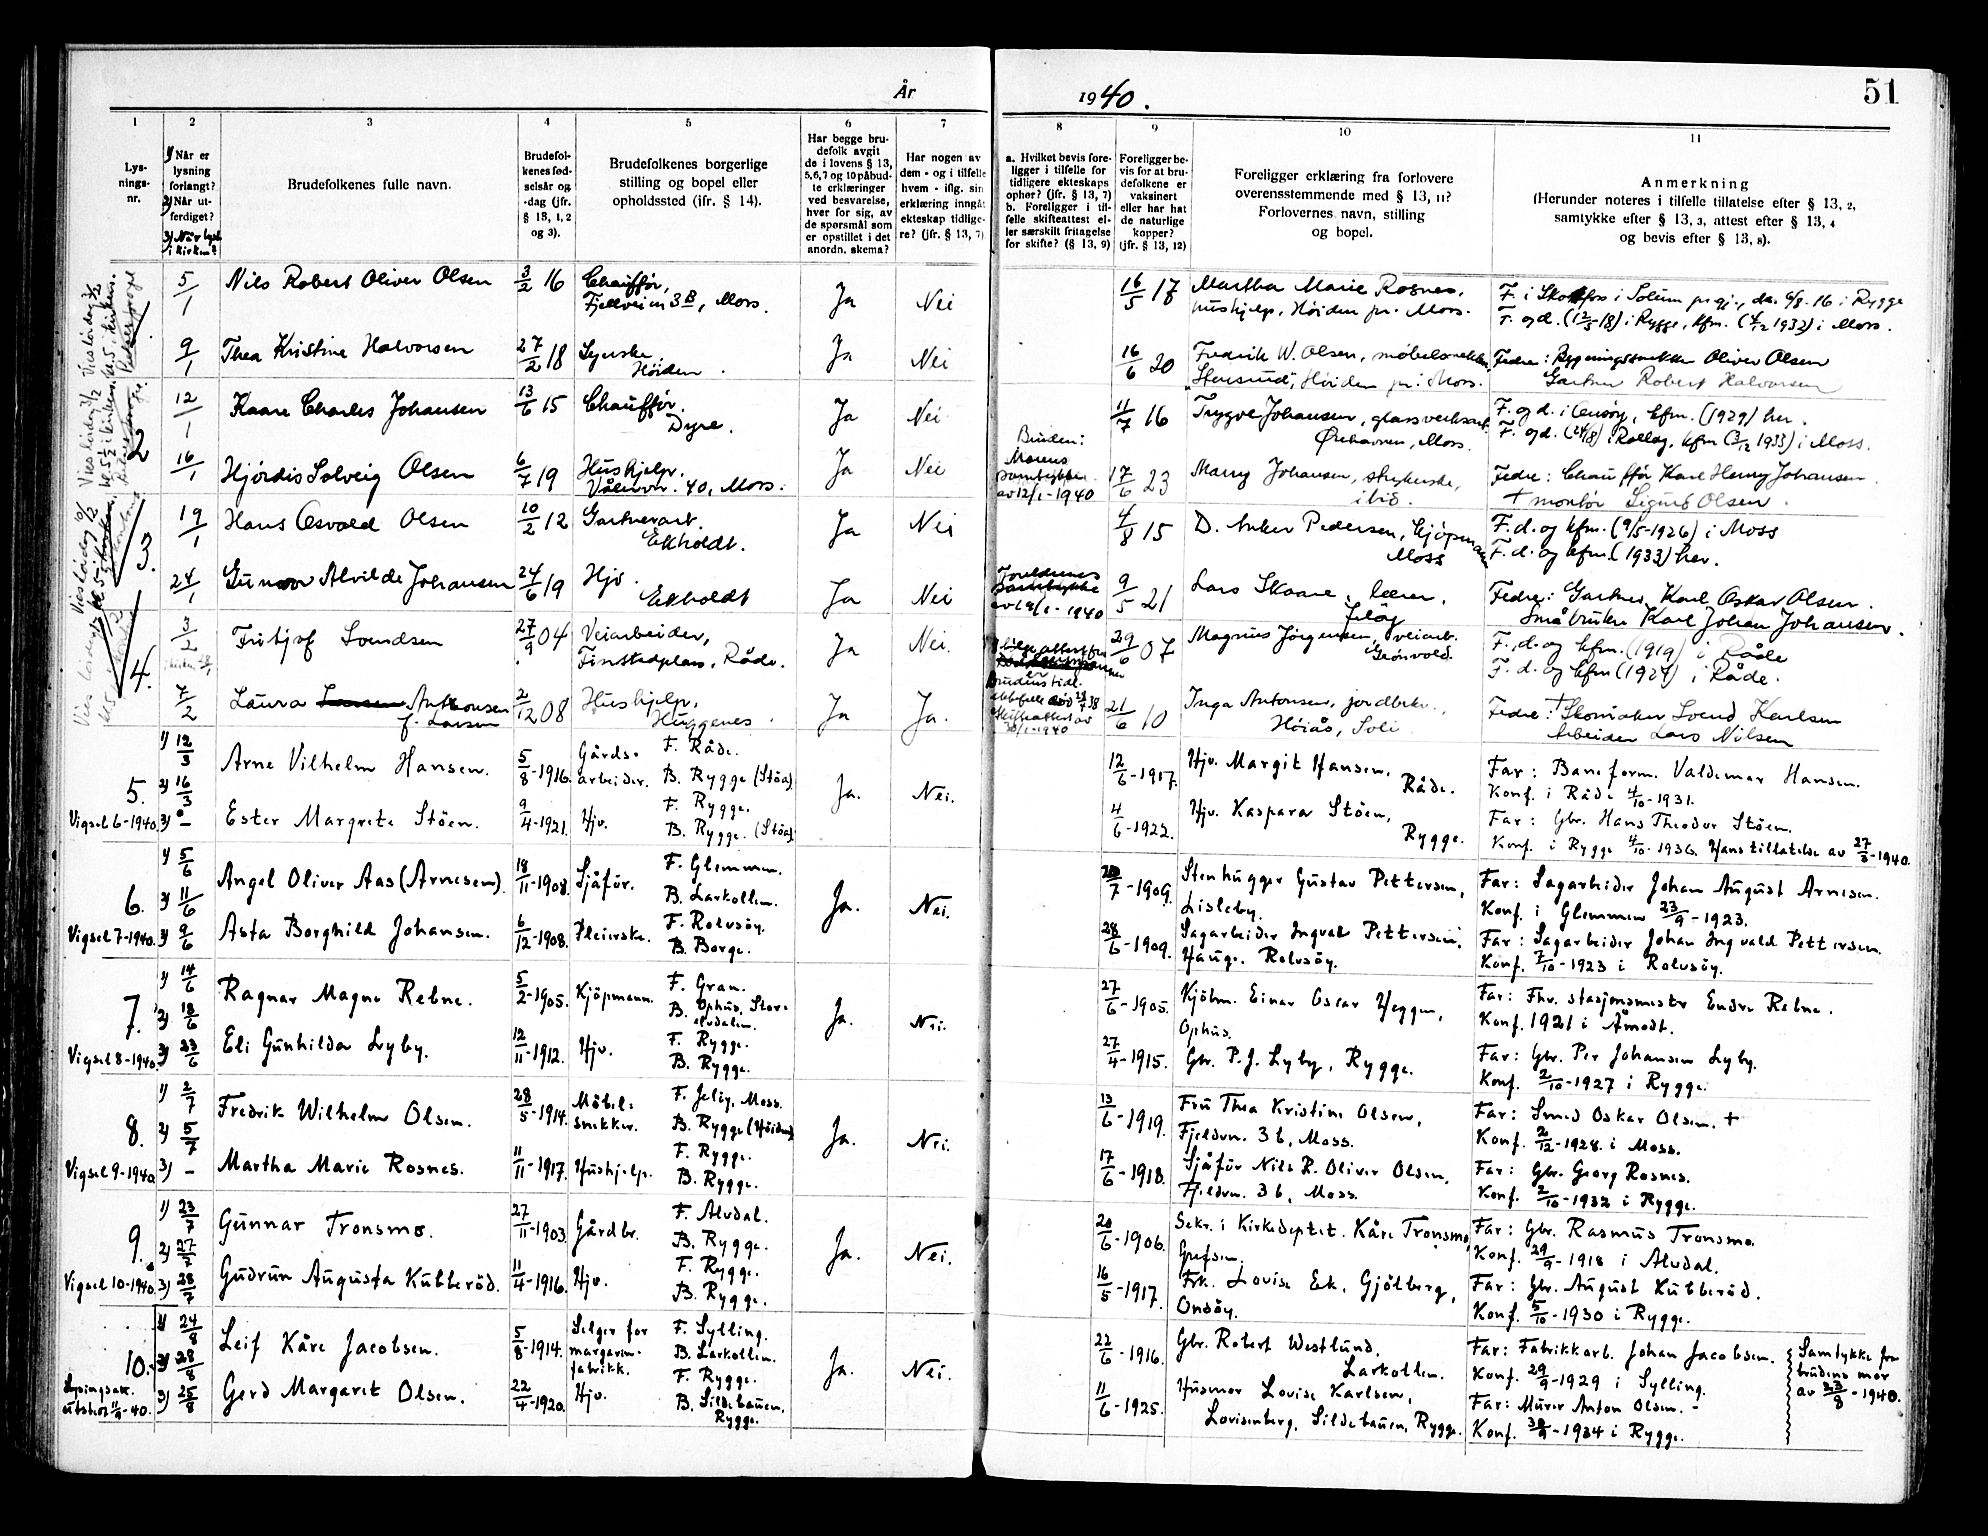 År 1940.
51
1 2 3 4 5 6 7 8 9 10 11
Lys-
nings-
nr.
1) Når er
lysning
forlangt?
2) Når ut-
ferdiget?
3) Når lyst
i kirken?
Brudefolkenes fulle navn.
Brudefol-
kenes fød-
selsår og
-dag (jfr.
§ 13, 1, 2
og 3).
Brudefolkenes borgerlige
stilling og bopel eller
opholdssted (jfr. § 14).
Har begge bru-
defolk avgit
de i lovens § 13,
5, 6, 7 og 10 påbud-
te erklæringer
ved besvarelse,
hver for sig, av
de spørsmål som
er opstillet i det
anordn. skema?
Har nogen av
dem - og i tilfelle
hvem - iflg. sin
erklæring inngåt
ekteskap tidlige-
re? (jfr. § 13, 7)
a. Hvilket bevis fore-
ligger i tilfelle for
tidligere ekteskaps
ophør? (jfr. § 13, 7)
b. Foreligger i til-
felle skifteattest el-
ler særskilt fritagelse
for skifte? (§ 13, 9)
Foreligger be-
vis for at bru-
defolkene er
vaksinert
eller har hat
de naturlige
kopper?
(jfr. § 13, 12)
Foreligger erklæring fra forlovere
overensstemmende med § 13, 11?
Forlovernes navn, stilling
og bopel.
Anmerkning
(Herunder noteres i tilfelle tillatelse efter § 13, 2,
samtykke efter § 13, 3, attest efter § 13, 4
og bevis efter § 13, 8).
5/1 Nils Robert Oliver Olsen 3/2 16 Chauffør, Ja Nei 16/5 17 Martha Marie Rosnes,
Fjellveien 3 B, Moss. hushjelp, Høiden pr. Moss.
F. i Skotfos i Solum pr.gj., dø. 6/8-16 i Rygge
F. og d. (12/5-18) i Rygge, kfm. (4/12 1932) i Moss.
9/1 Thea Kristine Halvorsen 27/2 18 Syerske, Høiden. Ja Nei 16/6 20 Fredrik W. Olsen, møbelsnekker
Høiden pr. Moss.
Fedre: Bygningssnekker Oliver Olsen
Gartner Robert Halvorsen
2
12/1 Kaare Charles Johansen 13/6 15 Chauffør. Dyre. Ja Nei 11/7 16 Trygve Johansen, glassverksarb.
Ørehavnen, Moss.
F. og d. i Onsøy, kfm. (1929) her.
F. og d. (24/8) i Rollag, kfm (3/12 1933) i Moss.
16/1 Hjørdis Solveig Olsen 6/7 19 Hushjelp. Vålervn. 40, Moss. Ja Nei
Bruden:
Morens
samtykke
av 12/1-1940
17/6 23 Marry Johansen, strykerske,
ibid.
Fedre: Chauffør Karl Henry Johansen.
† montør Sigurd Olsen.
3.
19/1 Hans Osvald Olsen 10/2 12 Gartnerarb. Ekholdt. Ja Nei 4/8 15 D. Anker Pedersen, kjøpmann
Moss
F. d. og kfm. (9/5-1926) i Moss
F. d. og kfm. (1933) her.
24/1 Gunvor Alvilde Johansen 24/6 19 Hjv. Ekholdt Ja Nei
Foreldrenes
samtykke
1940
9/5 21 Lars Skaare, lærer,
Jeløy
Fedre: Gartner Karl Oskar Olsen.
Småbruker Karl Johan Johansen.
4.
3/2 Fritjof Svendsen 27/9 04 Veiarbeider, Ja Nei. 29/6 07 Magnus Jørgensen, veiarb.
Finstadplass, Råde. Grønvold.
F., d. og kfm. (1919) i Råde
F. d. og kfm (1924) i Råde.
7/2 Laura Antonsen 2/12 08 Hushjelp, Ja Ja.
f. Larsen Huggenes.
skifteattest av
1940
21/6 10 Inga Antonsen, jordbrukr.,
Høiås, Soli
Fedre: † Skomaker Svend Karlsen
Arbeider Lars Nilsen
5.
Vigsel 6-1940.
1) 12/3
2) 16/3
3) -
Arne Vilhelm Hansen. 5/8-1916. Gårds- F. Råde.
arbeider. B. Rygge (Støa)
Ja. Nei. 12/6-1917. Hjv. Margit Hansen,
Råde.
Far: Baneform. Valdemar Hansen.
Konf. i Råde 4/10-1931.
Ester Margrete Støen. 9/4-1921. Hjv. F. Rygge.
B. Rygge. (Støa)
4/6-1922. Hjv. Kaspara Støen,
Rygge.
Far: Gbr. Hans Theodor Støen.
Konf. i Rygge 4/10-1936. Hans tillatelse av 27/3-1940.
6.
Vigsel 7-1940.
1) 5/6
2) 11/6
3) 9/6
Angel Oliver Aas (Arnesen). 18/11-1908. Sjåfør. F. Glemmen.
B. Larkollen.
Ja. Nei. 20/7-1909. Stenhugger Gustav Pettersen,
Lisleby.
Far: Sagarbeider Johan August Arnesen.
Konf. i Glemmen 23/9-1923.
Asta Borghild Johansen. 6/12-1908. Pleierske. F. Rolvsøy.
B. Borge.
28/6-1909. Sagarbeider Ingvald Pettersen,
Hauge, Rolvsøy.
Far: Sagarbeider Johan Ingvald Pettersen.
Konf. 7/10-1923 i Rolvsøy.
7.
Vigsel 8-1940.
1) 14/6
2) 18/6
3) 23/6
Ragnar Magne Rebne. 5/2-1905. Kjøpmann. F. Gran.
B. Ophus, Stor-
elvdalen.
Ja. Nei. 27/6-1905. Kjøbm. Einar Oscar Heggen,
Ophus.
Far: Fhv. stasjonsmester Endre Rebne.
Konf. 1921 i Åmodt.
Eli Gunhilda Lyby. 12/11-1912. Hjv. F. Rygge.
B. Rygge.
27/4-1915. Gbr. P. J. Lyby, Rygge.
Far: Gbr. Per Johansen Lyby.
Konf. 2/10-1927 i Rygge.
8.
Vigsel 9-1940
1) 2/7
2) 5/7
3) -
Fredrik Wilhelm Olsen. 28/5-1914. Møbel- F. Jeløy, Moss.
snekker. B. Rygge (Høiden)
Ja. Nei. 13/6-1919. Fru Thea Kristine Olsen,
Fjeldvn. 3 b, Moss.
Far: Smed Oskar Olsen. †
Konf. 2/12-1928. i Moss.
Martha Marie Rosnes. 11/11-1917. Hushjelp. F. Rygge.
B. Rygge.
17/6-1918. Sjåfør Nils R. Oliver Olsen,
Fjeldvn. 3 b, Moss.
Far: Gbr. Georg Rosnes.
Konf. 2/10-1932 i Rygge.
9.
Vigsel 10-1940.
1) 23/7
2) 27/7
3) 28/7
Gunnar Tronsmo. 27/11-1903. Gårdbr. F. Alvdal.
B. Rygge.
Ja. Nei. 20/6-1906. Sekr. i Kirkedeptet. Kåre Tronsmo,
Grefsen.
Far: Gbr. Rasmus Tronsmo.
Konf. 29/9-1918 i Alvdal.
Gudrun Augusta Kubberød. 11/4-1916. Hjv. F. Rygge.
B. Rygge.
16/5-1917. Frk. Lovise Ek, Gjølberg,
Onsøy.
Far: Gbr. August Kubberød.
Konf. 5/10-1930 i Rygge.
10.
Lysingsatt.
utstedt 11/9-40.
1) 24/8
2) 28/8
3) 25/8
Leif Kåre Jacobsen. 5/8-1914. Selger for F. Sylling.
margarin- B. Larkollen.
fabrikk.
Ja. Nei. 22/6-1916. Gbr. Robert Westlund,
Larkollen.
Far: Fabrikkarb. Johan Jacobsen.
Konf. 29/9-1929 i Sylling.
Gerd Margaret Olsen. 22/4-1920. Hjv. F. Rygge.
B. Sildebauen,
Rygge.
11/6-1925. Husmor Lovise Karlsen,
Lovisenberg, Sildebauen, Rygge.
Far: Murer Anton Olsen. -
Konf. 30/9-1934 i Rygge.
Samtykke fra
brudens mor
av 23/8-1940.